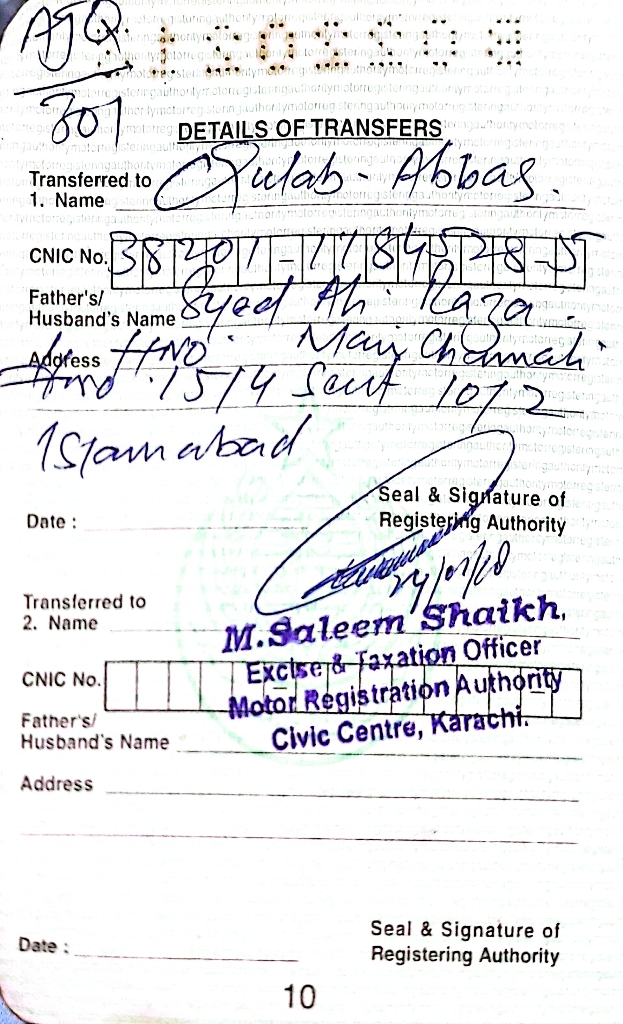 AJQ
307
DETAILS OF TRANSFERS
Transferred to
1. Name Qulab - Abbas.
CNIC No. 38201-1184528-5
Father's/
Husband's Name Syed Ali Raza.
Address HNO. Main Channali
Hno. 1514 Sect 10/2
Islamabad
Seal & Signature of
Date : Registering Authority
Transferred to
2. Name
M.Saleem Shaikh.
Excise & Taxation Officer
CNIC No.
Motor Registration Authority
Father's/
Civic Centre, Karachi.
Husband's Name
Address
Seal & Signature of
Date : Registering Authority
10